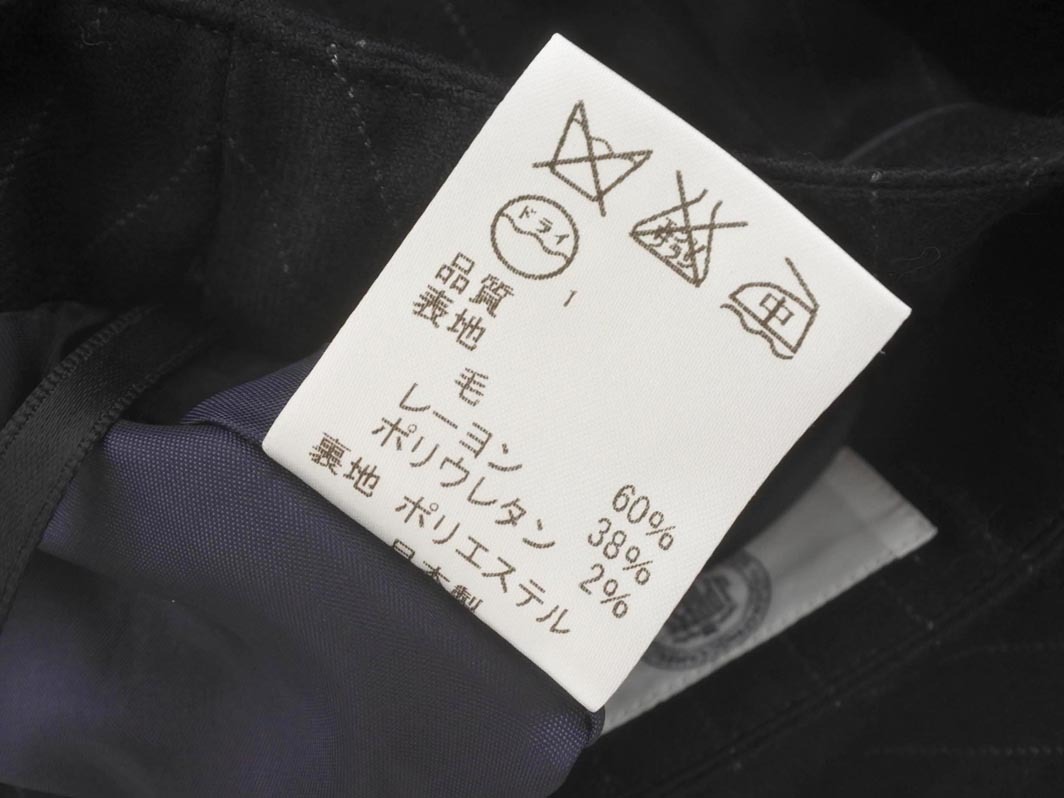 エンソサラシ
中
ドライ
品質
表地
毛 60%
レーヨン 38%
ポリウレタン 2%
裏地 ポリエステル
日本製